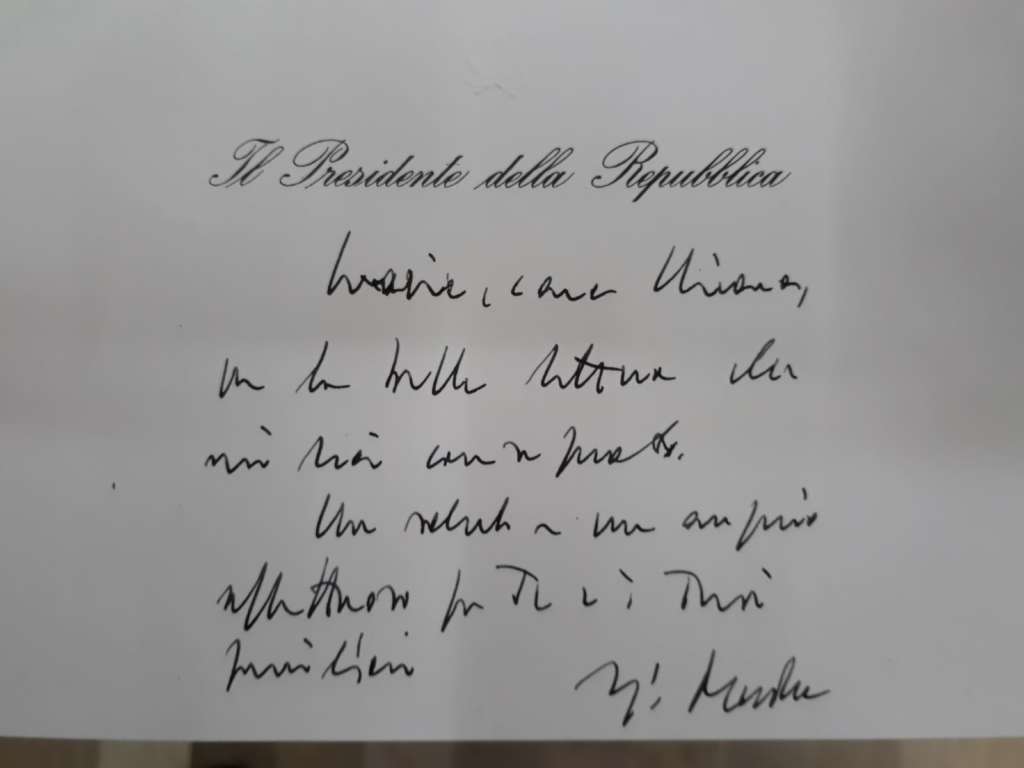 Il Presidente della Repubblica
Grazie, cara Chiara,
per la bella lettera che
mi hai
Un saluto e un augurio
affettuoso per Te e i Tuoi
familiari